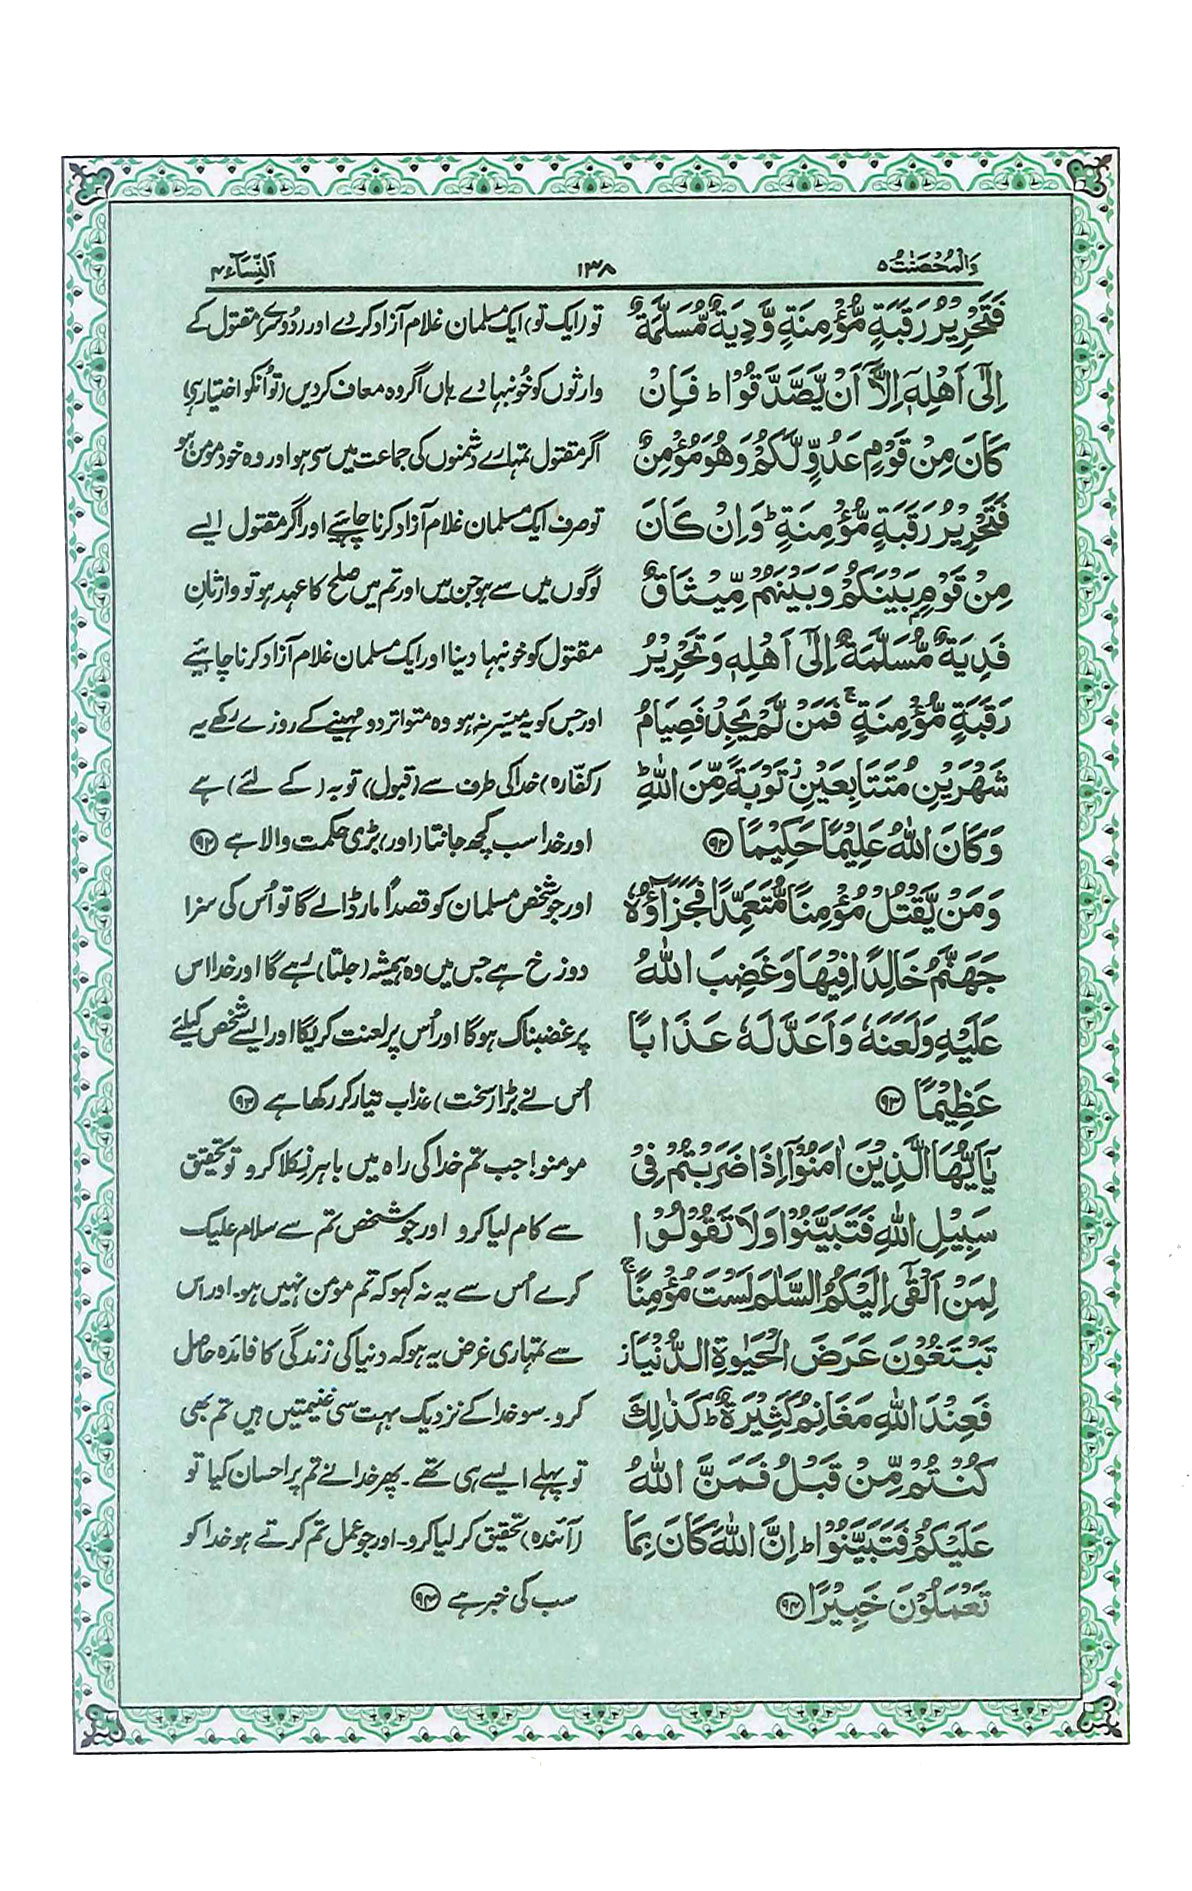 وَالْمُحْصَنٰتُ ۵
۱۳۸
اَلنِّسَآء ۴
فَتَحْرِيْرُ رَقَبَةٍ مُّؤْمِنَةٍ وَّدِيَةٌ مُّسَلَّمَةٌ
اِلٰٓى اَهْلِهٖٓ اِلَّآ اَنْ يَّصَّدَّقُوْا ؕ فَاِنْ
كَانَ مِنْ قَوْمٍ عَدُوٍّ لَّكُمْ وَهُوَ مُؤْمِنٌ
فَتَحْرِيْرُ رَقَبَةٍ مُّؤْمِنَةٍ ؕ وَاِنْ كَانَ
مِنْ قَوْمٍۭ بَيْنَكُمْ وَبَيْنَهُمْ مِّيْثَاقٌ
فَدِيَةٌ مُّسَلَّمَةٌ اِلٰٓى اَهْلِهٖ وَتَحْرِيْرُ
رَقَبَةٍ مُّؤْمِنَةٍ ۚ فَمَنْ لَّمْ يَجِدْ فَصِيَامُ
شَهْرَيْنِ مُتَتَابِعَيْنِ ز تَوْبَةً مِّنَ اللّٰهِ ؕ
وَكَانَ اللّٰهُ عَلِيْمًا حَكِيْمًا ﴿۹۲﴾
وَمَنْ يَّقْتُلْ مُؤْمِنًا مُّتَعَمِّدًا فَجَزَآؤُهٗ
جَهَنَّمُ خَالِدًا فِيْهَا وَغَضِبَ اللّٰهُ
عَلَيْهِ وَلَعَنَهٗ وَاَعَدَّ لَهٗ عَذَابًا
عَظِيْمًا ﴿۹۳﴾
يٰٓاَيُّهَا الَّذِيْنَ اٰمَنُوْٓا اِذَا ضَرَبْتُمْ فِيْ
سَبِيْلِ اللّٰهِ فَتَبَيَّنُوْا وَلَا تَقُوْلُوْا
لِمَنْ اَلْقٰٓى اِلَيْكُمُ السَّلٰمَ لَسْتَ مُؤْمِنًا ۚ
تَبْتَغُوْنَ عَرَضَ الْحَيٰوةِ الدُّنْيَا ز
فَعِنْدَ اللّٰهِ مَغَانِمُ كَثِيْرَةٌ ؕ كَذٰلِكَ
كُنْتُمْ مِّنْ قَبْلُ فَمَنَّ اللّٰهُ
عَلَيْكُمْ فَتَبَيَّنُوْا ؕ اِنَّ اللّٰهَ كَانَ بِمَا
تَعْمَلُوْنَ خَبِيْرًا ﴿۹۴﴾
تو (ایک تو) ایک مسلمان غلام آزاد کر دے اور (دوسرے) مقتول کے
وارثوں کو خُونبہا دے ہاں اگر وہ معاف کردیں (تو اُنکو اختیار ہی)
اگر مقتول تمہارے دشمنوں کی جماعت میں سی ہو اور وہ خود مومن ہو
تو صرف ایک مسلمان غلام آزاد کرنا چاہئیے اور اگر مقتول ایسے
لوگوں میں سے ہو جن میں اور تم میں صلح کا عہد ہو تو وارثانِ
مقتول کو خونبہا دینا اور ایک مسلمان غلام آزاد کرنا چاہئیے
اور جس کو یہ میسّر نہ ہو وہ متواتر دو مہینے کے روزے رکھے یہ
(کفّارہ) خدا کی طرف سے (قبول) توبہ (کے لئے) ہے
اور خدا سب کچھ جانتا (اور) بڑی حکمت والا ہے ﴿۹۲﴾
اور جو شخص مسلمان کو قصداً مار ڈالے گا تو اُس کی سزا
دوزخ ہے جس میں وہ ہمیشہ (جلتا) رہے گا اور خدا اس
پر غضبناک ہوگا اور اُس پر لعنت کریگا اور ایسے شخص کیلئے
اُس نے بڑا (سخت) عذاب تیار کر رکھا ہے ﴿۹۳﴾
مومنو! جب تم خدا کی راہ میں باہر نِکلا کرو تو تحقیق
سے کام لیا کرو اور جو شخص تم سے سلام علیک
کرے اُس سے یہ نہ کہو کہ تم مومن نہیں ہو۔ اور اس
سے تمہاری غرض یہ ہو کہ دنیا کی زندگی کا فائدہ حاصل
کرو۔ سو خدا کے نزدیک بہت سی غنیمتیں ہیں تم بھی
تو پہلے ایسے ہی تھے۔ پھر خدا نے تم پر احسان کیا تو
(آئندہ) تحقیق کر لیا کرو۔ اور جو عمل تم کرتے ہو خدا کو
سب کی خبر ہے ﴿۹۴﴾